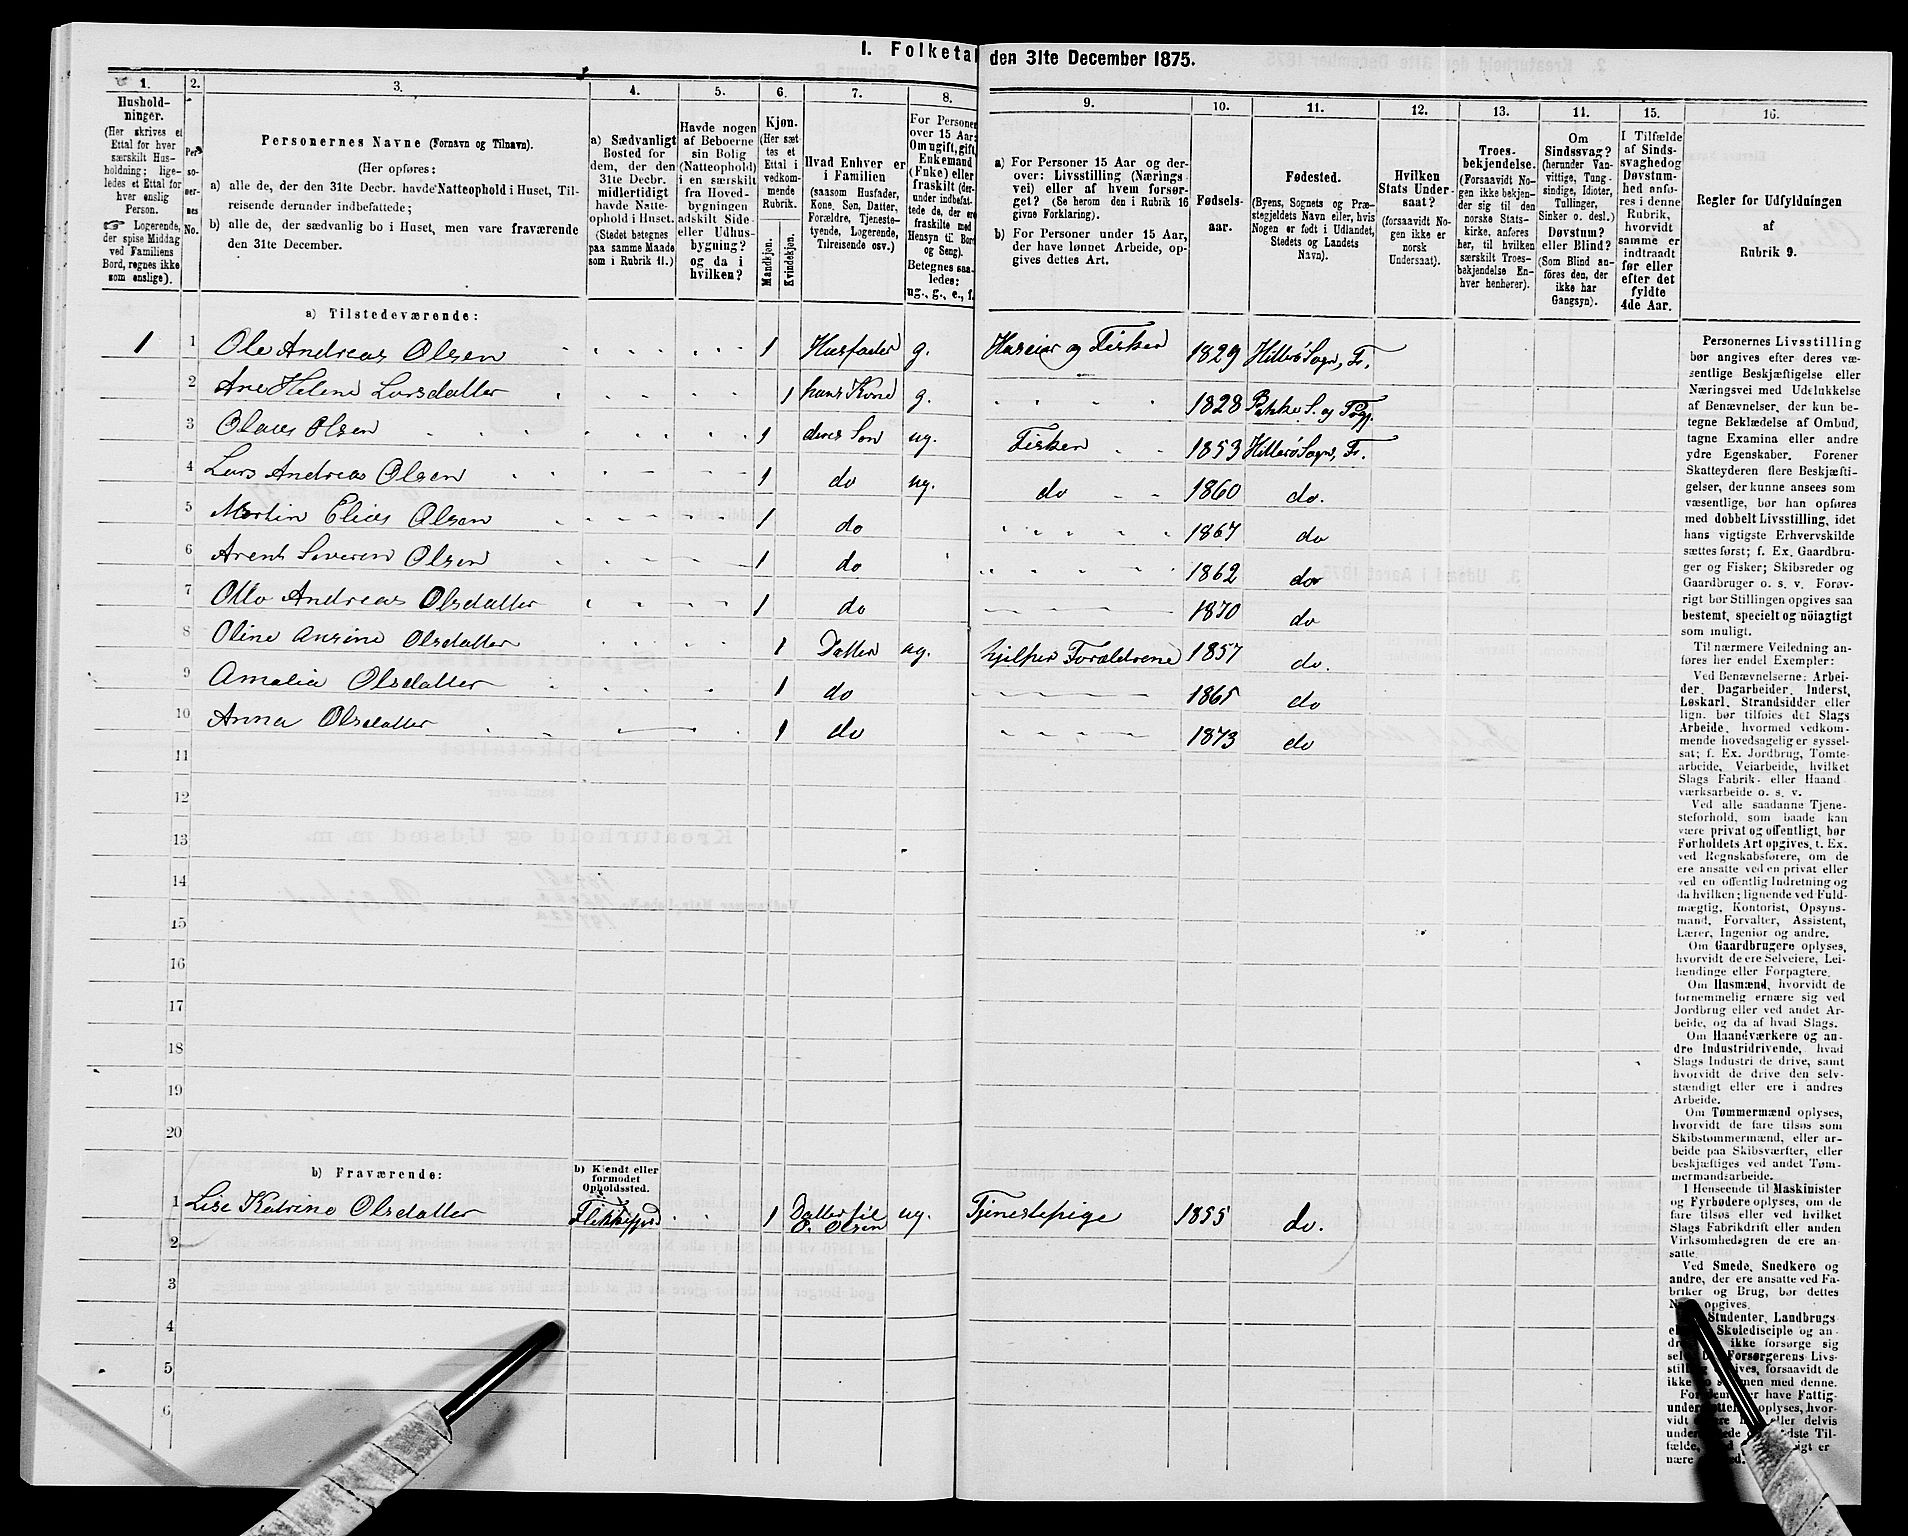 I. Folketal
den 31te December 1875.
1.
Hushold-
ninger.
(Her skrives et
Ettal for hver
særskilt Hus-
holdning; lige-
ledes et Ettal for
hver enslig
Person.
Logerende,
der spise Middag
ved Familiens
Bord, regnes ikke
som enslige).
2.
Per-
so-
ner-
nes
No.
3.
Personernes Navne (Fornavn og Tilnavn).
(Her opføres:
a) alle de, der den 31te Decbr. havde Natteophold i Huset, Til-
reisende derunder indbefattede;
b) alle de, der sædvanlig bo i Huset, men vare fraværende
den 31te December.
4.
a) Sædvanligt
Bosted for
dem, der den
31te Decbr.
midlertidigt
havde Natte-
ophold i Huset.
(Stedet betegnes
paa samme Maade
som i Rubrik 11.)
5.
Havde nogen
af Beboerne
sin Bolig
(Natteophold)
i en særskilt
fra Hoved-
bygningen
adskilt Side-
eller Udhus-
bygning?
og da i
hvilken?
6.
Kjøn.
(Her sæt-
tes et
Ettal i
vedkom-
mende
Rubrik.
Mandkjøn.
Kvindekjøn.
7.
Hvad Enhver er
i Familien
(saasom Husfader,
Kone, Søn, Datter,
Forældre, Tjeneste-
tyende, Logerende,
Tilreisende osv.)
8.
For Personer
over 15 Aar:
Om ugift, gift,
Enkemand
(Enke) eller
fraskilt (der-
under indbefat-
tede de, der ere
fraskilte med
Hensyn til Bord
og Seng).
Betegnes saa-
ledes:
ug., g., e., f.
9.
a) For Personer 15 Aar og der-
over: Livsstilling (Nærings-
vei) eller af hvem forsør-
get? (Se herom den i Rubrik 16
givne Forklaring).
b) For Personer under 15 Aar,
der have lønnet Arbeide, op-
gives dettes Art.
10.
Fødsels-
aar.
11.
Fødested.
(Byens, Sognets og Præ-
stegjeldets Navn eller, hvis
Nogen er født i Udlandet,
Stedets og Landets
Navn).
12.
Hvilken
Stats Under-
saat?
(forsaavidt No-
gen ikke er
norsk
Undersaat).
13.
Troes-
bekjendelse.
(Forsaavidt No-
gen ikke bekjen-
der sig til den
norske Stats-
kirke, anføres
her, til hvilken
særskilt Troes-
bekjendelse En-
hver henhører).
11.
Om
Sindssvag?
(herunder Van-
vittige, Tung-
sindige, Idioter,
Tullinger,
Sinker o. desl.)
Døvstum?
eller Blind?
(Som Blind an-
føres den, der
ikke har
Gangsyn).
15.
I Tilfælde
af Sinds-
svaghed og
Døvstum-
hed anfø-
res i denne
Rubrik,
hvorvidt
samme er
indtraadt
før eller
efter det
fyldte
4de Aar.
16.
Regler for Udfyldningen
af
Rubrik 9.
a) Tilstedeværende:
1 1 Ole Andreas Olsen 1 Husfader g. Huseier og Fisker 1829 Hitterø Sogn, Fr.
2 Ane Helene Larsdatter 1 hans Kone g. 1828 Bakke S. og Pgj.
3 Olaus Olsen 1 deres Søn ug. Fisker 1853 Hitterø Sogn, Fr.
4 Lars Andreas Olsen 1 do ug. do 1860 do.
5 Martin Elias Olsen 1 do 1867 do
6 Arent Severin Olsen 1 do 1862 do
7 Otto Andreas Olsdatter 1 do 1870 do
8 Oline Ansine Olsdatter 1 Datter ug. hjelper Forældrene 1857 do.
9 Amalia Olsdatter 1 do 1865 do
10 Anna Olsdatter 1 do 1873 do
11
12
13
14
15
16
17
18
19
20
b) Fraværende:
b) Kjendt eller
formodet
Opholdssted.
1 Lise Katrine Olsdatter Flekkefjord 1 Datter til O. Olsen ug. Tjenestepige 1855 do.
2
3
4
5
6
Personernes Livsstilling
bør angives efter deres væ-
sentlige Beskjæftigelse eller
Næringsvei med Udelukkelse
af Benævnelser, der kun be-
tegne Beklædelse af Ombud,
tagne Examina eller andre
ydre Egenskaber. Forener
Skatteyderen flere Beskjæfti-
gelser, der kunne ansees som
væsentlige, bør han opføres
med dobbelt Livsstilling, idet
hans vigtigste Erhvervskilde
sættes først; f. Ex. Gaardbru-
ger og Fisker; Skibsreder og
Gaardbruger o. s. v. Forøv-
rigt bør Stillingen opgives saa
bestemt, specielt og nøiagtigt
som muligt.
Til nærmere Veiledning an-
føres her endel Exempler:
Ved Benævnelserne: Arbei-
der, Dagarbeider, Inderst,
Løskarl, Strandsidder eller
lign. bør tilføies det Slags
Arbeide, hvormed vedkom-
mende hovedsagelig er syssel-
sat; f. Ex. Jordbrug, Tomte-
arbeide, Veiarbeide, hvilket
Slags Fabrik- eller Haand-
værksarbeide o. s. v.
Ved alle saadanne Tjene-
steforhold, som baade kan
være privat og offentligt, bør
Forholdets Art opgives, f. Ex.
ved Regnskabsførere, om de
ere ansatte ved en privat eller
ved en offentlig Indretning og
da hvilken; lignende ved Fuld-
mægtig, Kontorist, Opsyns-
mand, Forvalter, Assistent,
Lærer, Ingeniør og andre.
Om Gaardbrugere oplyses,
hvorvidt de ere Selveiere, Lei-
lændinge eller Forpagtere.
Om Husmænd, hvorvidt de
fornemmelig ernære sig ved
Jordbrug eller ved andet Ar-
beide, og da af hvad Slags.
Om Haandværkere og an-
dre Industridrivende, hvad
Slags Industri de drive, samt
hvorvidt de drive den selv-
stændigt eller ere i andres
Arbeide.
Om Tømmermænd oplyses,
hvorvidt de fare tilsøs som
Skibstømmermænd, eller ar-
beide paa Skibsværfter, eller
beskjæftiges ved andet Tøm-
mermandsarbeide.
I Henseende til Maskinister
og Fyrbødere oplyses, om de
fare tilsøs eller ved hvilket
Slags Fabrikdrift eller anden
Virksomhedsgren de ere an-
satte.
Ved Smede, Snedkere og
andre, der ere ansatte ved Fa-
briker og Brug, bør dettes
opgives.
Studenter, Landbrugs
Skoledisciple og an-
ikke forsørge sig
Forsørgerens Livs-
forsaavidt de
ikke men med denne.
have Fattig-
oplyses, hvor-
eller delvis
Til-
er